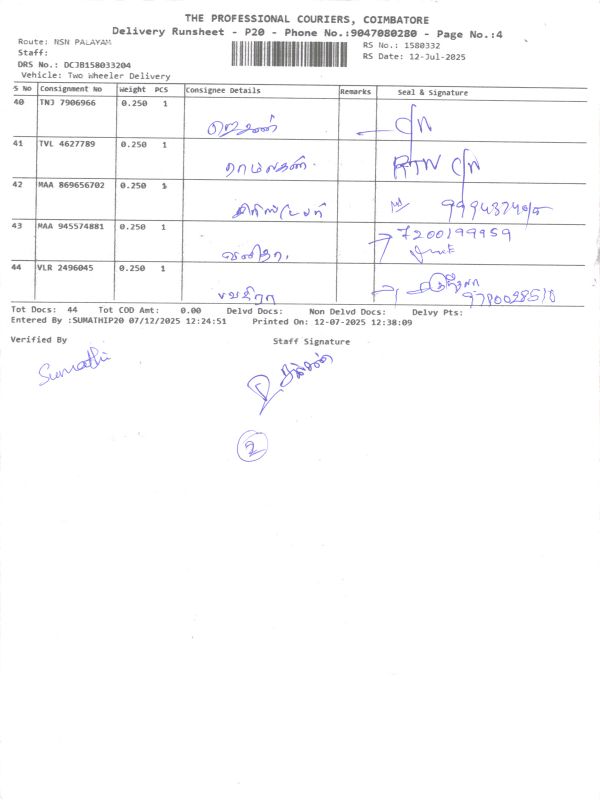 THE PROFESSIONAL COURIERS, COIMBATORE
Delivery Runsheet - P20 - Phone No.:9047080280 - Page No.:4
Route: NSN PALAYAM
RS No.: 1580332
Staff:
RS Date: 12-Jul-2025
DRS No.: DCJB158033204
Vehicle: Two Wheeler Delivery
S No Consignment No Weight PCS Consignee Details Remarks Seal & Signature
40 TNJ 7906966 0.250 1
41 TVL 4627789 0.250 1
RTN
42 MAA 869656702 0.250 1
43 MAA 945574881 0.250 1 7200199959
வனிதா.
44 VLR 2496045 0.250 1
பவித்ரா 9780028510
Tot Docs: 44 Tot COD Amt: 0.00 Delvd Docs: Non Delvd Docs: Delvy Pts:
Entered By :SUMATHIP20 07/12/2025 12:24:51 Printed On: 12-07-2025 12:38:09
Verified By Staff Signature
Sumathi
2